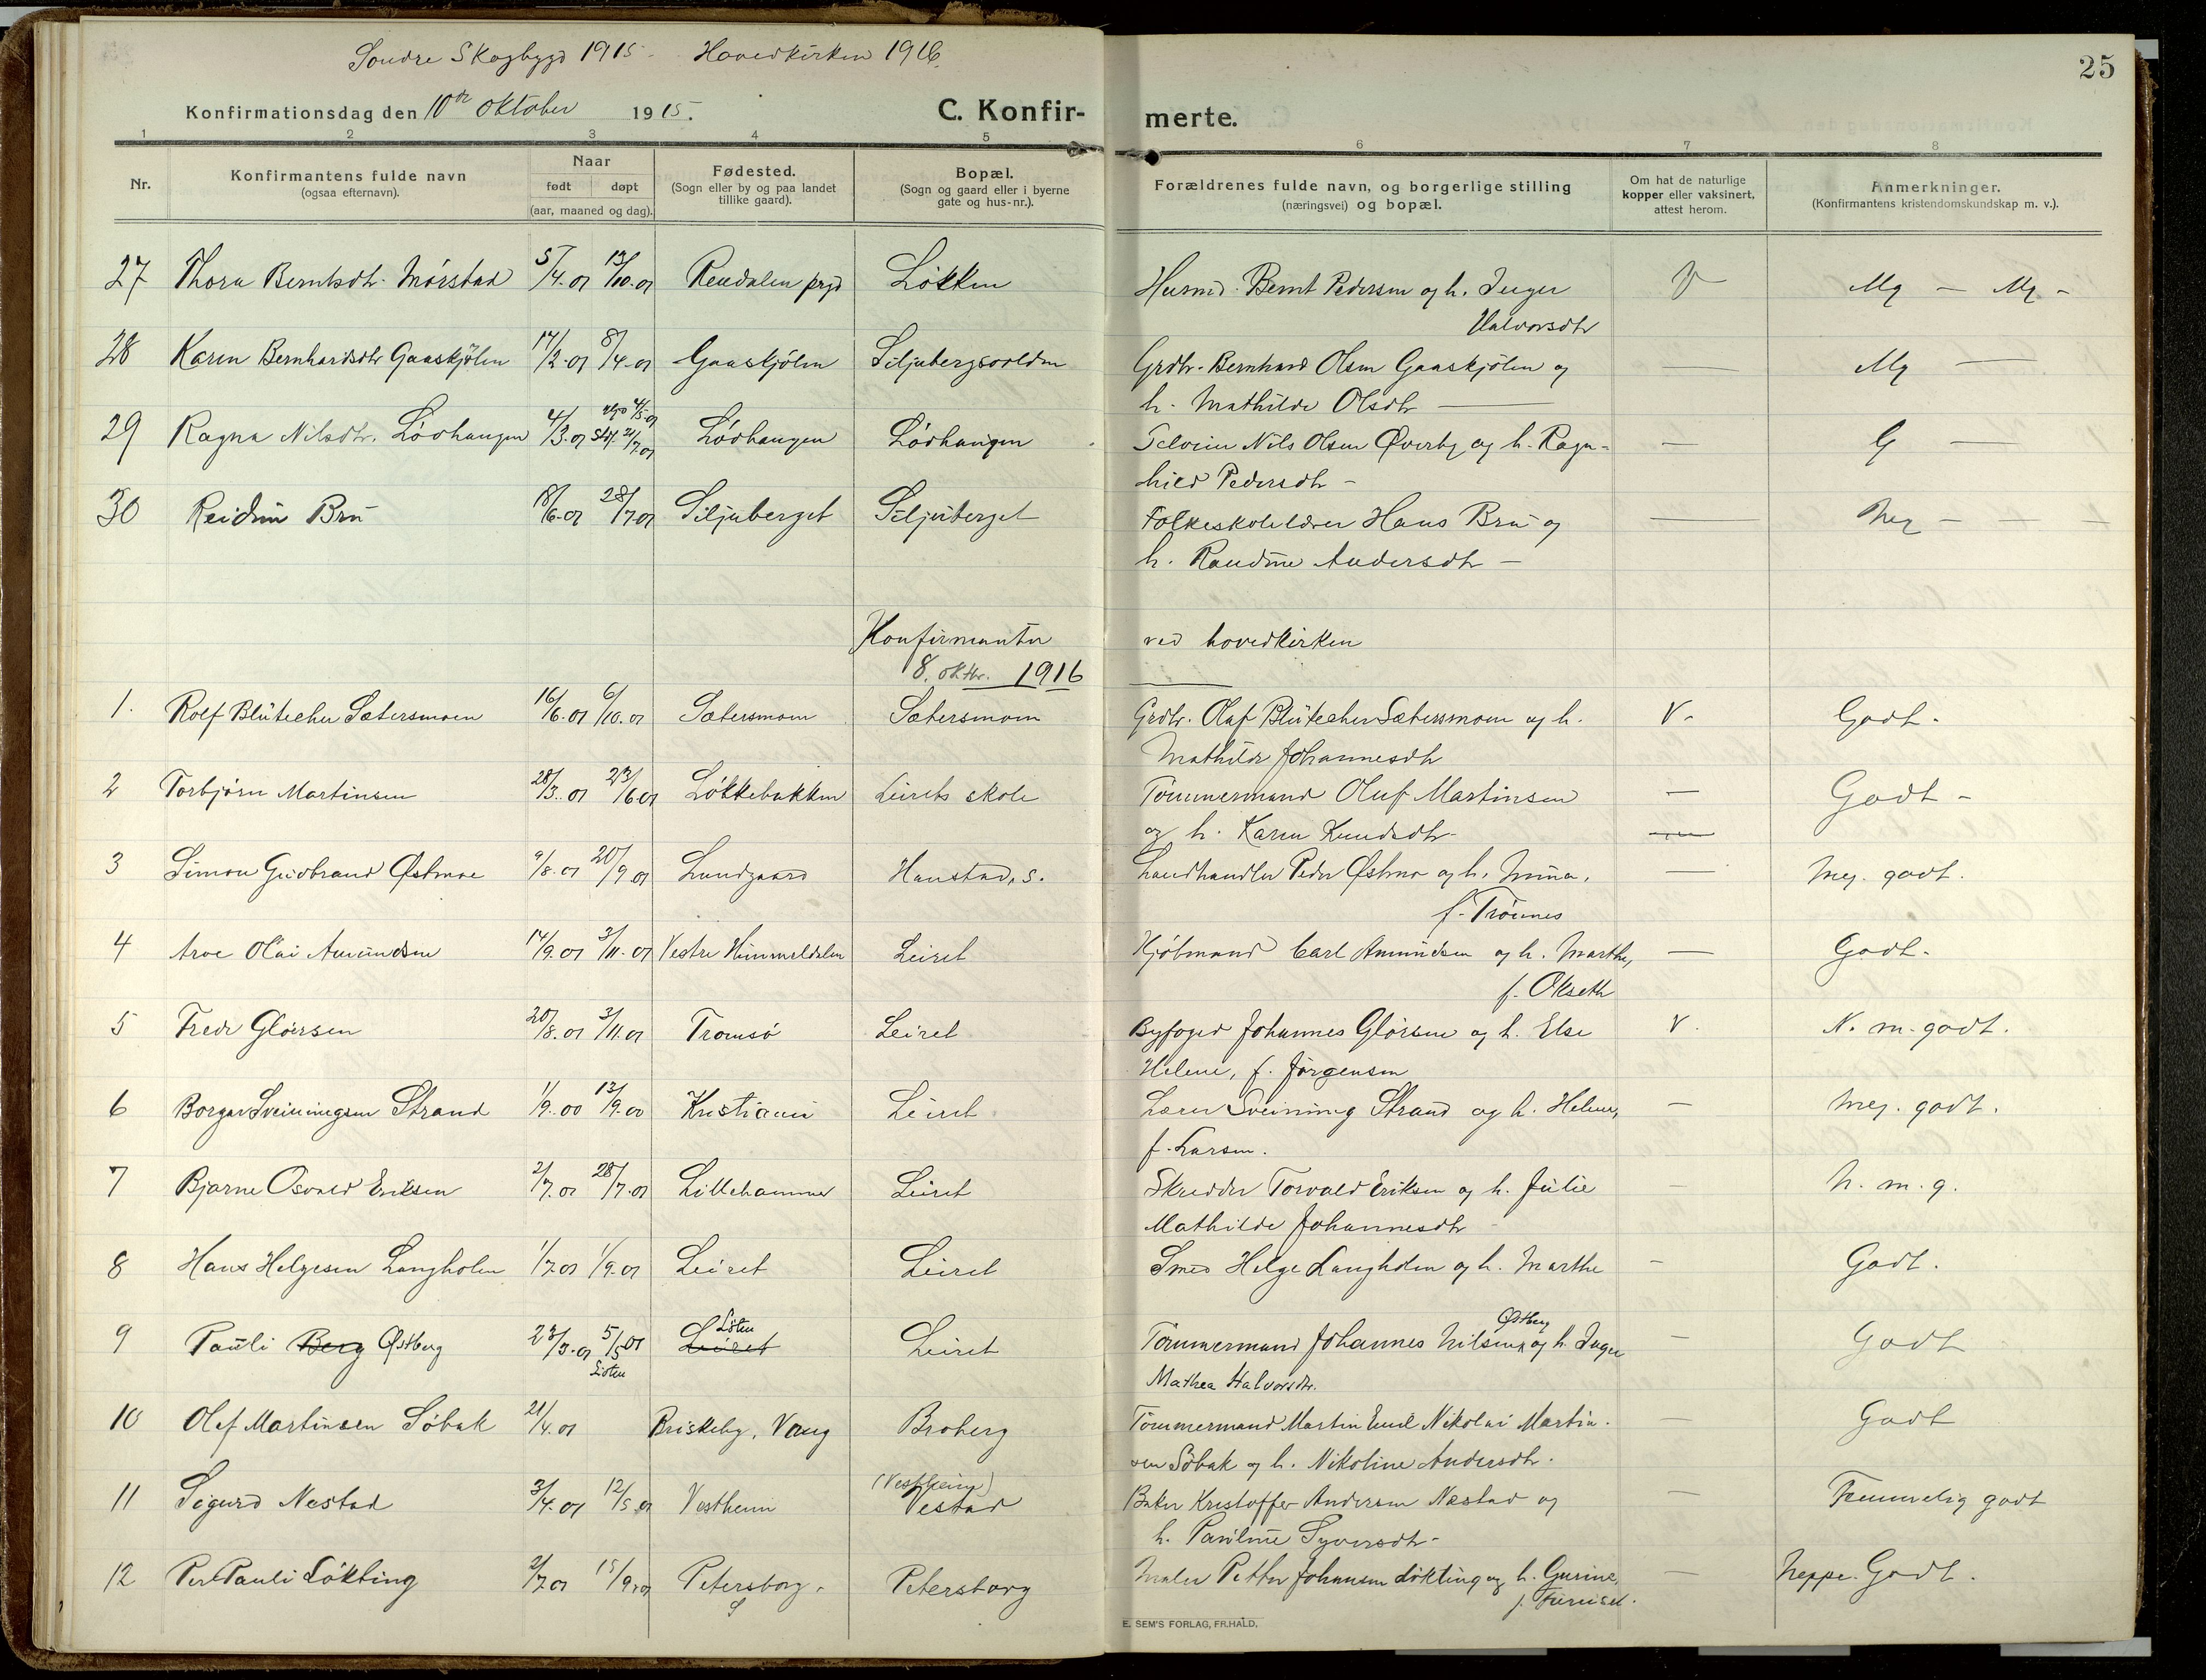 25
Søndre Skogbygd 1915 - Hovedkirken 1916.
Konfirmationsdag den 10de oktober 1915. C. Konfirmerte.
1 2 3 4 5 6 7 8
Nr.
Konfirmantens fulde navn
(ogsaa efternavn).
Naar
født døpt
(aar, maaned og dag).
Fødested.
(Sogn eller by og paa landet
tillike gaard).
Bopæl.
(Sogn og gaard eller i byerne
gate og hus-nr.).
Forældrenes fulde navn, og borgerlige stilling
(næringsvei) og bopæl.
Om hat de naturlige
kopper eller vaksinert,
attest herom.
Anmerkninger.
(Konfirmantens kristendomskundskap m. v.).
27 Thora Berntsdtr. Mørstad 5/4-01 13/10-01 Rendalen prgd Løkken Husmd. Bernt Pedersen og h. Inger V Mg - Mg -
Halvorsdtr
28 Karen Bernhardsdtr Gaaskjølen 17/2-01 8/4-01 Gaaskjølen Siljubergsvolden Grdbr. Bernhard Olsen Gaaskjølen og — Mg —
h. Mathilde Olsdtr —
29 Ragna Nilsdtr. Løvhaugen 4/3-01 4/5-01 21/7-01 Løvhaugen Løvhaugen Selveier Nils Olsen Øverby og h. Ragn- — G —
hild Pedersdtr -
30 Reidun Bru 18/6-01 28/7-01 Siljuberget Siljuberget Folkeskolelærer Hans Bru og — Meg - - -
h. Randine Andersdtr -
Konfirmanter ved hovedkirken
8. oktbr. 1916
1. Rolf Blütecher Sætersmoen 16/6-01 6/10-01 Sætersmoen Sætersmoen Grdbr. Olaf Blütecher Sætersmoen og h. V- Godt.
Mathilde Johannesdtr
2 Torbjørn Martinsen 28/3-01 23/6-01 Løkkebakken Leirets skole Tømmermand Oluf Martinsen — Godt -
og h. Karen Knudsdtr-
3 Simon Gudbrand Østmoe 9/8-01 20/9-01 Lundgaard Hanstad, s. Landhandler Peder Østmoe og h. Mina, — Meg. godt.
f. Trønnes
4 Arve Olai Amundsen 14/9-01 3/11-01 Vestre Himmeldalen Leiret Kjøbmand Carl Amundsen og h. Marthe, — Godt.
f. Okseth
5 Fredr Glørsen 20/8-01 3/11-01 Tromsø Leiret Byfoged Johannes Glørsen og h. Else V. N. m. godt.
Helene, f. Jørgensen
6 Borgar Sveinungsen Strand 1/9-00 13/9-00 Kristiania Leiret Lærer Sveinung Strand og h. Helene, — Meg. godt.
f. Larsen.
7 Bjarne Osvald Eriksen 2/7-01 28/7-01 Lillehammer Leiret Skredder Torvald Eriksen og h. Julie - N. m. g.
Mathilde Johannesdtr -
8 Hans Helgesen Langholen 1/7-01 1/9-01 Leiret Leiret Smed Helge Langholen og h. Marthe - Godt.
9 Pauli Berg Østberg 23/3-01 5/5 01 Løten Leiret Løten Leiret Tømmermand Johannes Nilsen Østberg og h. Inger — Godt
Mathea Halvorsdtr.
10 Olaf Martinsen Søbak 21/4-01 Briskeby, Vang Broberg Tømmermand Martin Emil Nikolai Martin- — Godt
sen Søbak og h. Nikoline Andersdtr.
11 Sigurd Nestad 3/4-01 12/5-01 Vestheim (Vestheim) Vestad Baker Kristoffer Andersen Næstad og — Temmelig godt
h. Pauline Syversdtr-
12 Per Pauli Løkting 2/7 01 15/9-01 Petersborg. Petersborg Maler Petter Johansen Løkting og h. Gurine, — Neppe Godt.
f. Furuset.
E. SEM'S FORLAG, FR.HALD.